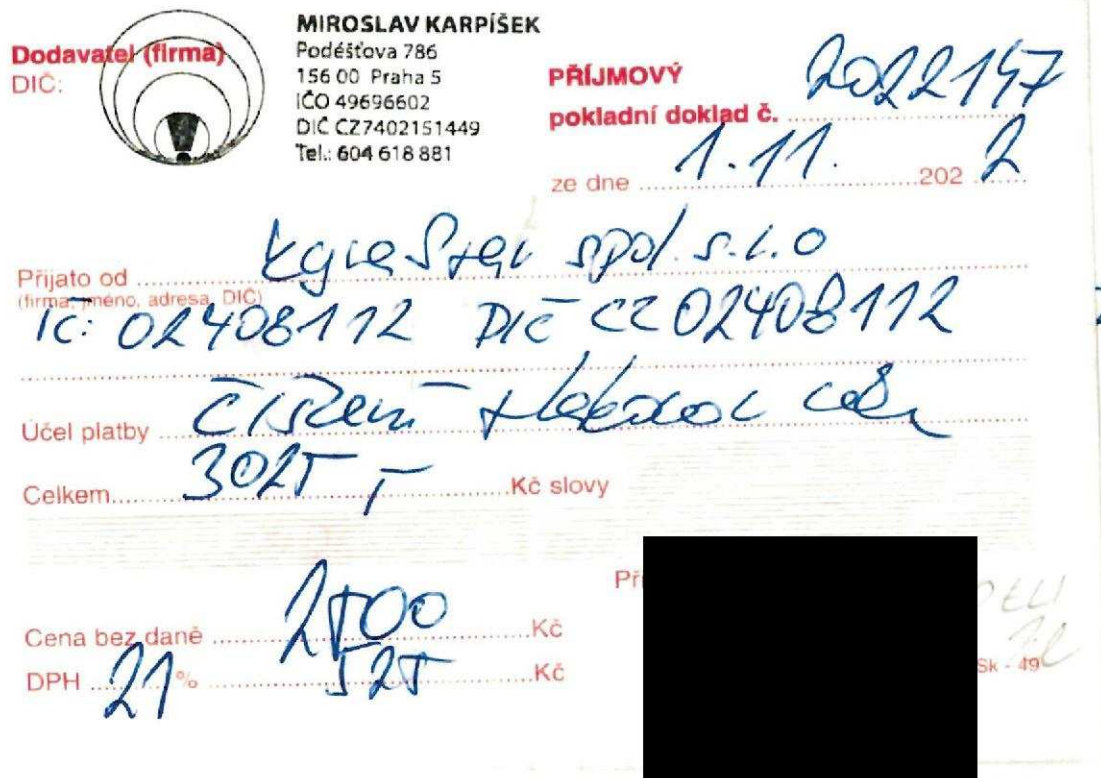 MIROSLAV KARPÍŠEK
Poděšťova 786
156 00 Praha 5
IČO 49696602
DIČ CZ7402151449
Tel.: 604 618 881
Dodavatel (firma)
DIČ:
PŘÍJMOVÝ
pokladní doklad č. 2022147
ze dne 1.11. 2022
Přijato od spol. s.r.o
(firma, jméno, adresa, DIČ)
IČ: 02408112 DIČ CZ02408112
Účel platby čištění
Celkem 3025 Kč slovy
Cena bez daně 2500 Kč
DPH 21% 525 Kč
Sk - 49